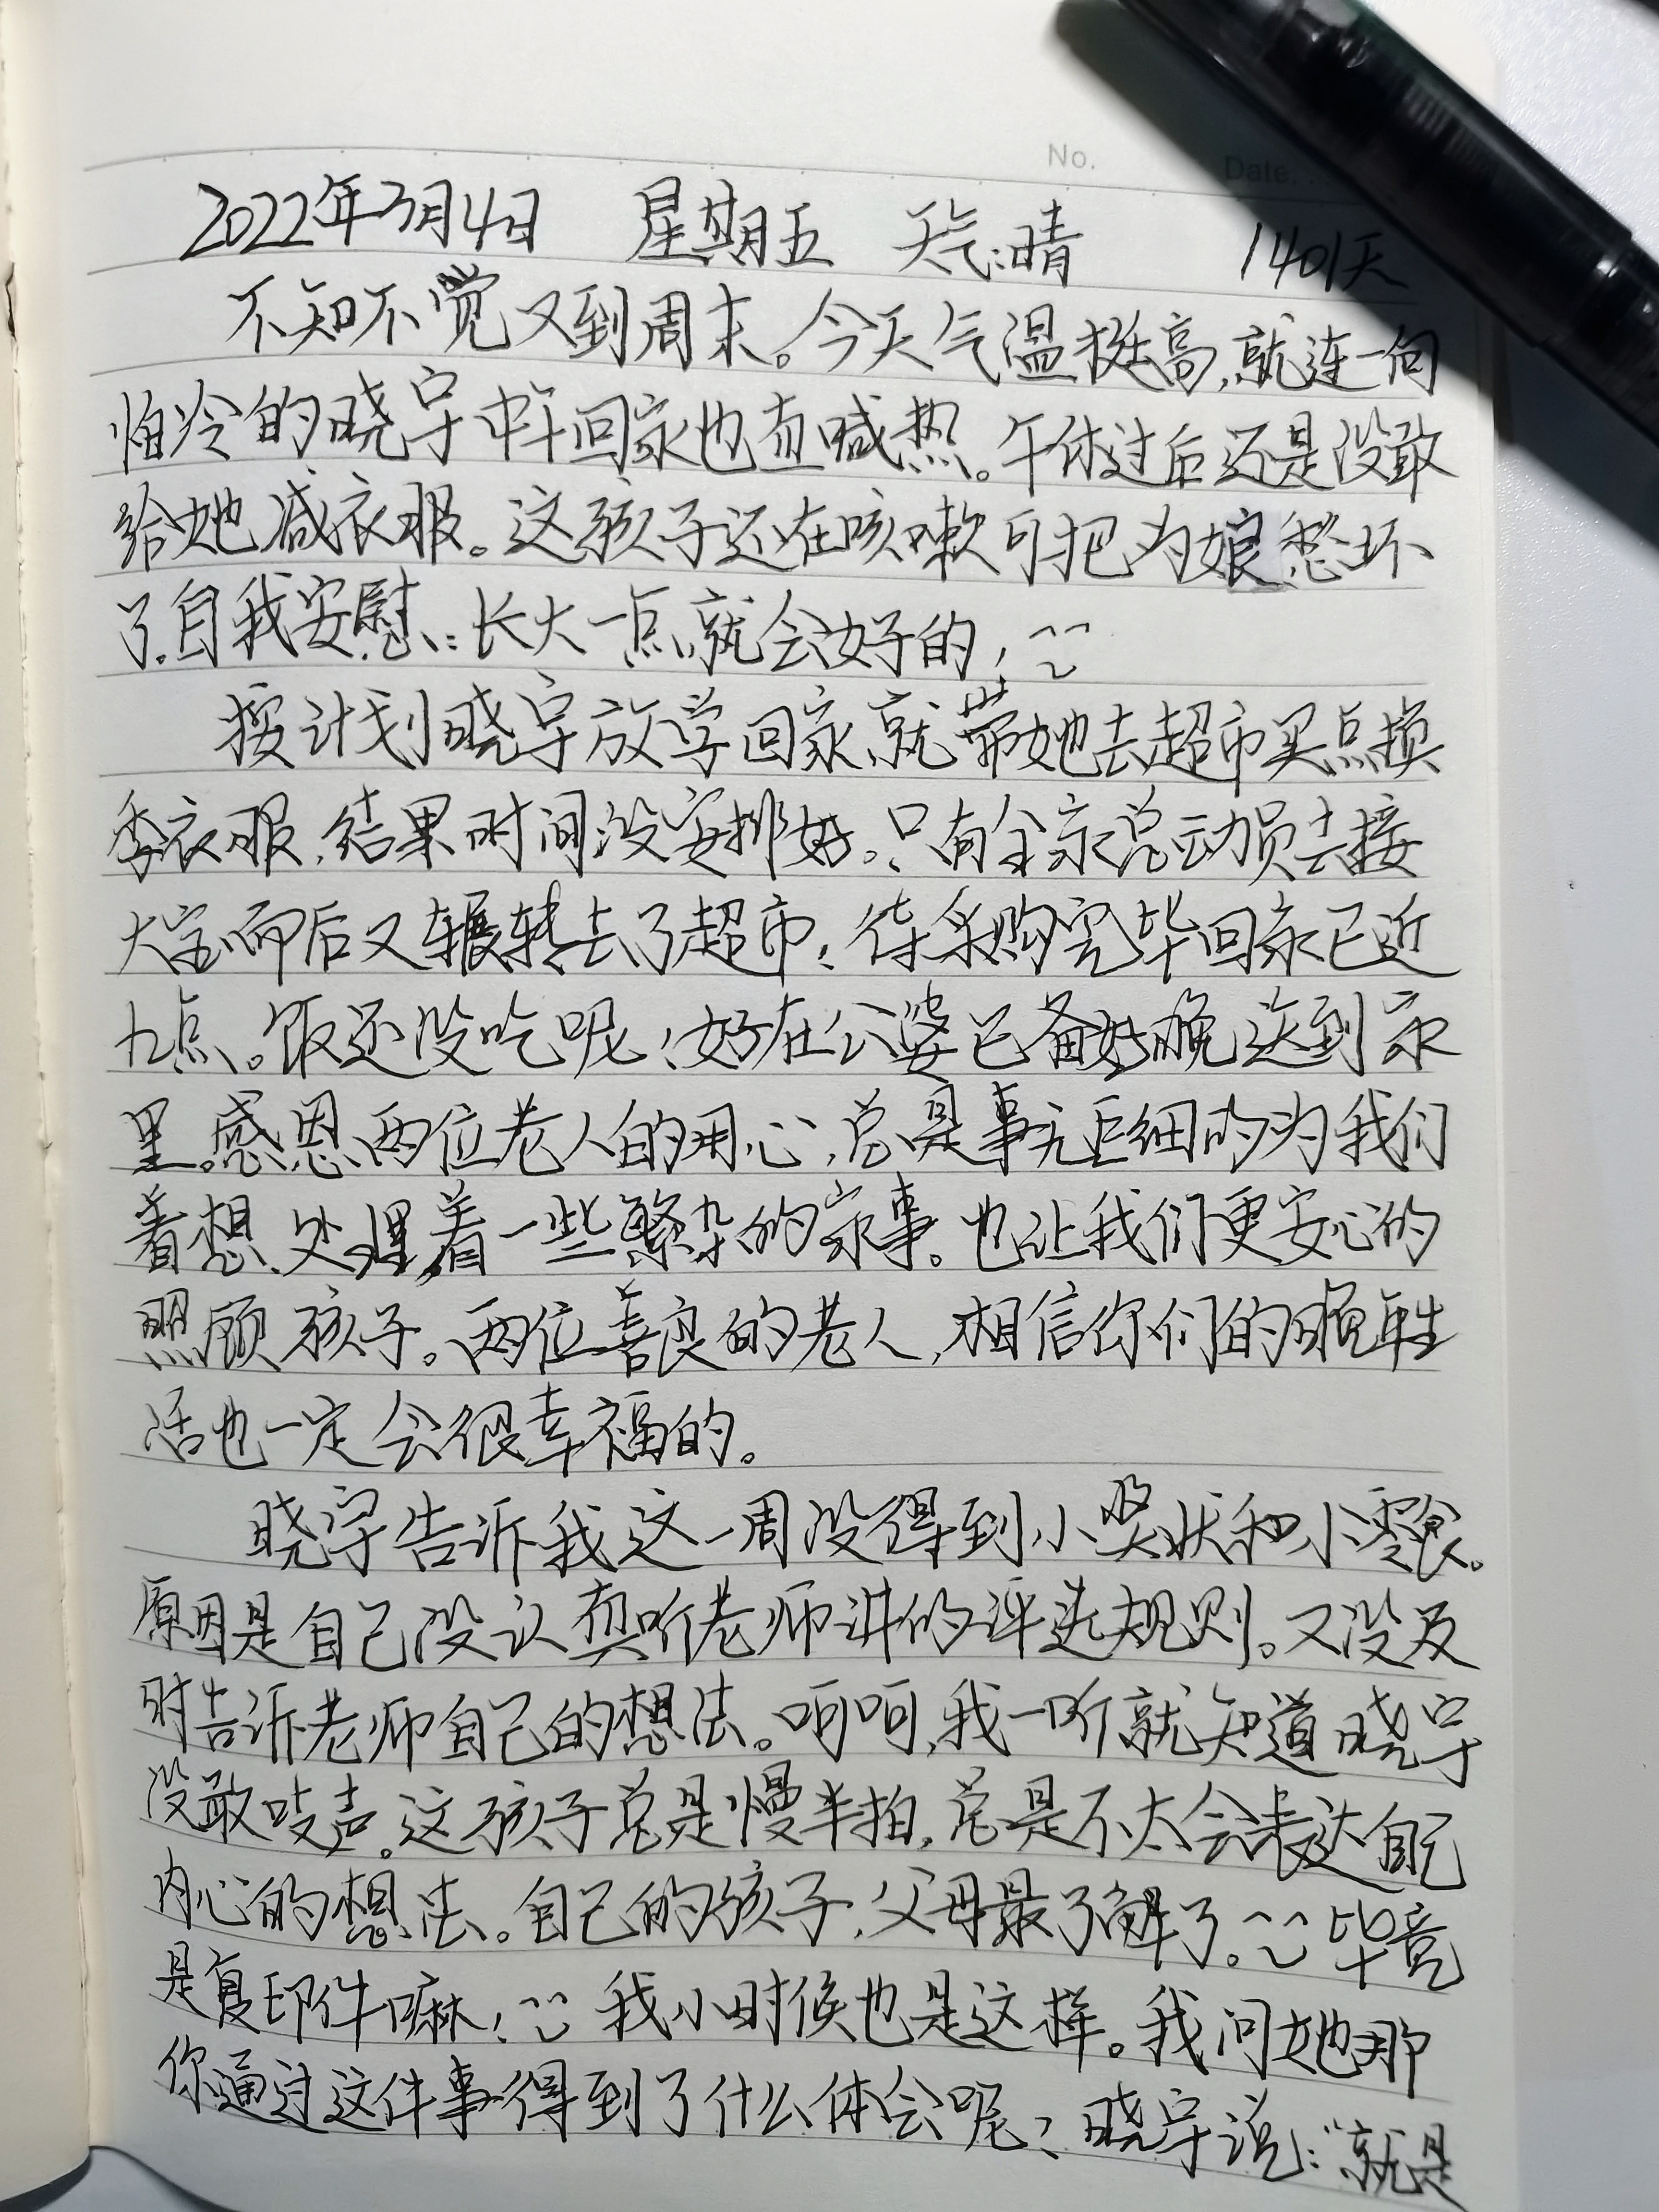 No.
Date.
2022年3月4日 星期五 天气:晴 1401天
不知不觉又到周末。今天气温挺高,就连一向
怕冷的晓宇中午回家也直喊热。午休过后还是没敢
给她减衣服。这孩子还在咳嗽可把为娘愁坏
了.自我安慰:长大一点就会好的!
按计划晓宇放学回家就带她去超市买点换
季衣服,结果时间没安排好。只有全家总动员去接
大宝而后又辗转去了超市,待采购完毕回家已近
九点。饭还没吃呢!好在公婆已备好晚送到家
里。感恩两位老人的用心,总是事无巨细的为我们
着想、处理着一些繁杂的家事。也让我们更安心的
照顾孩子。两位善良的老人,相信你们的晚年生
活也一定会很幸福的。
晓宇告诉我这一周没得到小奖状和小零食。
原因是自己没认真听老师讲的评选规则。又没及
时告诉老师自己的想法。呵呵,我一听就知道晓宇
没敢吱声。这孩子总是慢半拍,总是不太会表达自己
内心的想法。自己的孩子,父母最了解了。毕竟
是复印件嘛!我小时候也是这样。我问她那
你通过这件事得到了什么体会呢?晓宇说:“就是